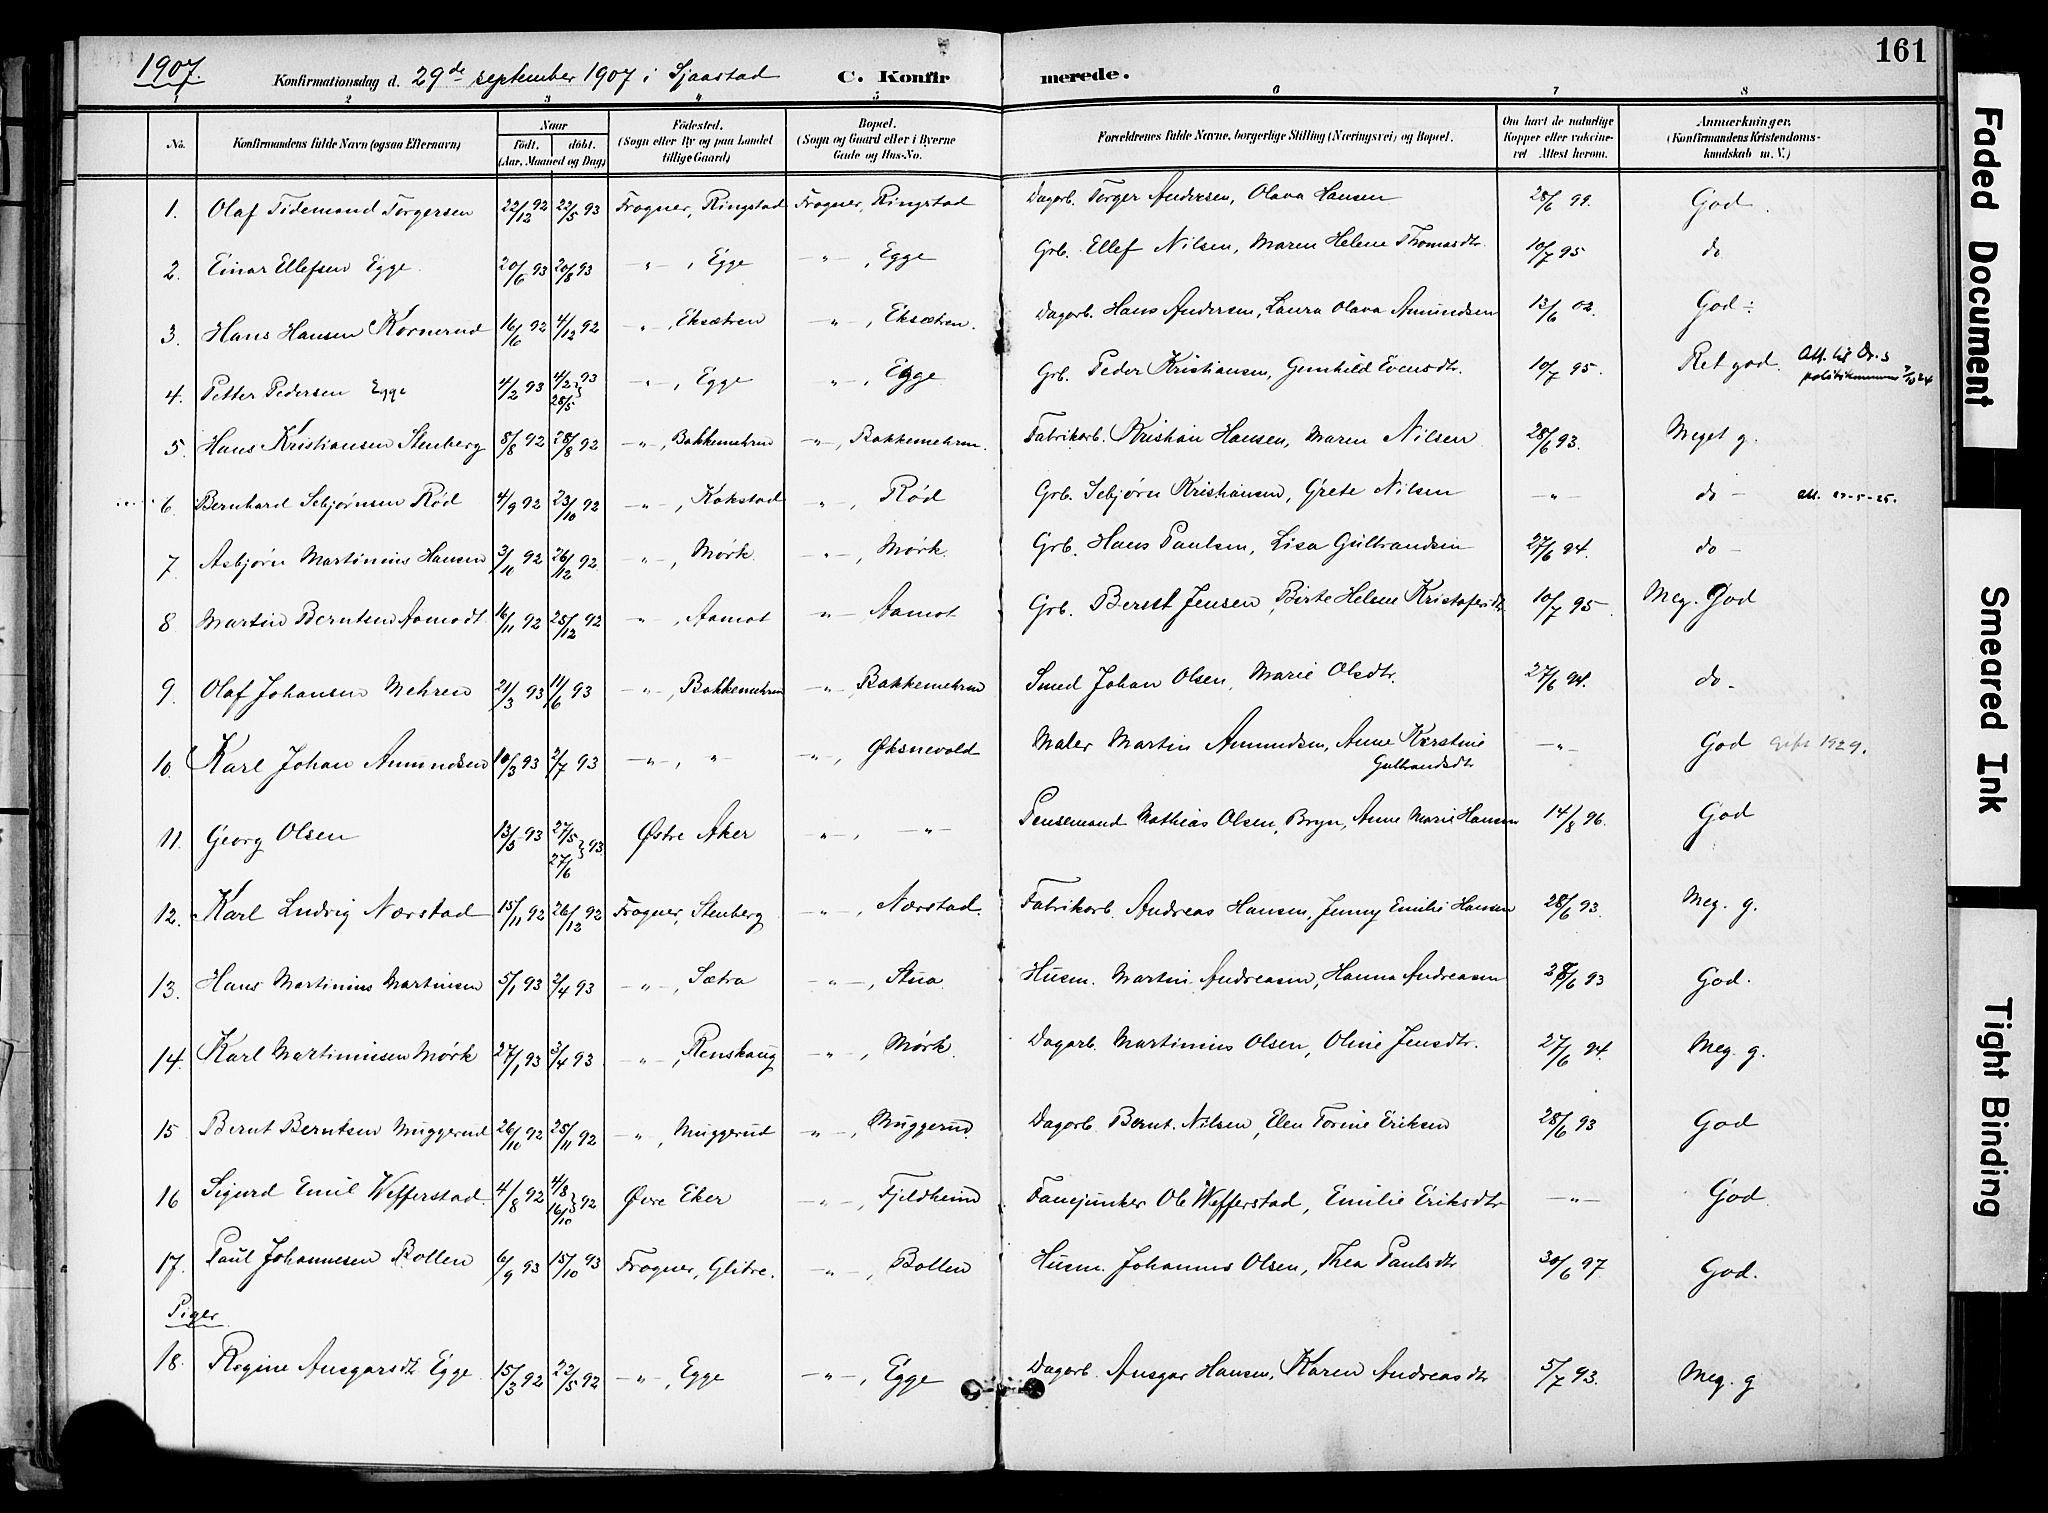 161
1907.
Konfirmationsdag d. 29de september 1907 i Sjaastad C. Konfirmerede.
1 2 3 4 5 6 7 8
No. Konfirmandens fulde Navn (ogsaa Efternavn) Naar født. døbt. (Aar, Maaned og Dag) Fødested. (Sogn eller By og paa Landet tillige Gaard) Bopæl. (Sogn og Gaard eller i Byerne Gade og Hus-No. Forældrenes fulde Navne, borgerlige Stilling (Næringsvei) og Bopæl. Om havt de naturlige Kopper eller vakcineret Attest herom. Anmærkninger. (Konfirmandens Kristendomskundskab m. V.)
1. Olaf Tidemand Torgersen 22/12 92 22/5 93 Frogner, Ringstad Frogner, Ringstad Dagarb. Torger Andersen, Olava Hansen 28/6 99. God.
2. Einar Ellefsen Egge. 20/6 93 20/8 93 -"-, Egge -"-, Egge Grb. Ellef Nilsen, Maren Helene Thomasdtr. 10/7 95 do
3. Hans Hansen Kornerud 16/6 92 4/12 92 -"-, Eksætren -"-, Eksætren. Dagarb. Hans Andersen, Laura Olava Amundsen 13/6 02. God ÷
4. Petter Pedersen Egge 4/2 93 4/2 93 28/5 -"-, Egge -"-, Egge Grb. Peder Kristiansen, Gunhild Evensdtr. 10/7 95. Ret god. Att. til Dr.s
5. Hans Kristiansen Stenberg 8/8 92 28/8 92 -"-, Bakkemehren -"-, Bakkemehren. Fabrikarb. Kristian Hansen, Maren Nilsen 28/6 93. Meget g.
6. Bernhard Sebjørnsen Rød 4/9 92 23/10 92 -"-, Kokstad -"-, Rød Grb. Sebjørn Kristiansen, Grete Nilsen -"- do - att. 27-5-25.
7. Asbjørn Martinius Hansen 3/10 92 26/12 92. -"-, Mørk. -"-, Mørk. Grb. Hans Paulsen, Lisa Gulbrandsen 27/6 94. do -
8 Martin Berntsen Aamodt. 16/11 92 25/12 92 -"-, Aamot -"- Aamot Grb. Bernt Jensen, Birte Helene Kristofersdtr 10/7 95. Meg. God
9. Olaf Johansen Mehren 21/3 93 11/6 93 -"-, Bakkemehren -"-, Bakkemehren Smed Johan Olsen, Marie Olsdtr. 27/6 94. do.
10. Karl Johan Amundsen 10/3 93 2/7 93 -"-, " -"-, Øksnevold Maler Martin Amundsen, Anne Kerstine Gulbrandsdtr -"- God gift 1929.
11. Georg Olsen 13/5 93 27/5 27/6 93. Østre Aker -"-, -"- Pensemand Mathias Olsen, Bryn, Anne Marie Hansen 14/8 96. God
12. Karl Ludvig Nærstad 15/11 92 26/12 92 Frogner, Stenberg -"-, Nærstad. Fabrikarb. Andreas Hansen, Jenny Emilie Hansen 28/6 93. Meg. g.
13. Hans Martinius Martinsen 5/1 93 2/4 93 -"-, Sætra -"-, Stua Husm. Martin Andreasen, Hanna Andreasen 28/6 93 God.
14. Karl Martiniusen Mørk 27/1 93 3/4 93 -"-, Renskaug -"-, Mørk. Dagarb. Martinius Olsen, Oline Jensdtr. 27/6 94. Meg. g.
15 Bernt Berntsen Muggerud 26/10 92 25/11 92 -"-, Muggerud -"-, Muggerud. Dagarb. Bernt. Nilsen, Elen Torine Eriksen 28/6 93 God
16 Sigurd Emil Wefferstad. 4/8 92 4/8 16/10 92 Øvre Eker -"-, Fjeldheim Fanejunker Ole Wefferstad, Emilie Eriksdtr -"- God.
17. Paul Johannesen Bollen 6/9 93 15/10 93 Frogner, Glitre. -"-, Bollen Husm. Johannes Olsen, Thea Paulsdtr 30/6 97. God.
Piger.
18. Regine Ansgarsdtr Egge 15/3 92 22/5 92 -"-, Egge -"-, Egge Dagarb. Ansgar Hansen, Karen Andreasdtr 5/7 93. Meg. g
Faded Document
Smeared Ink
Tight Binding